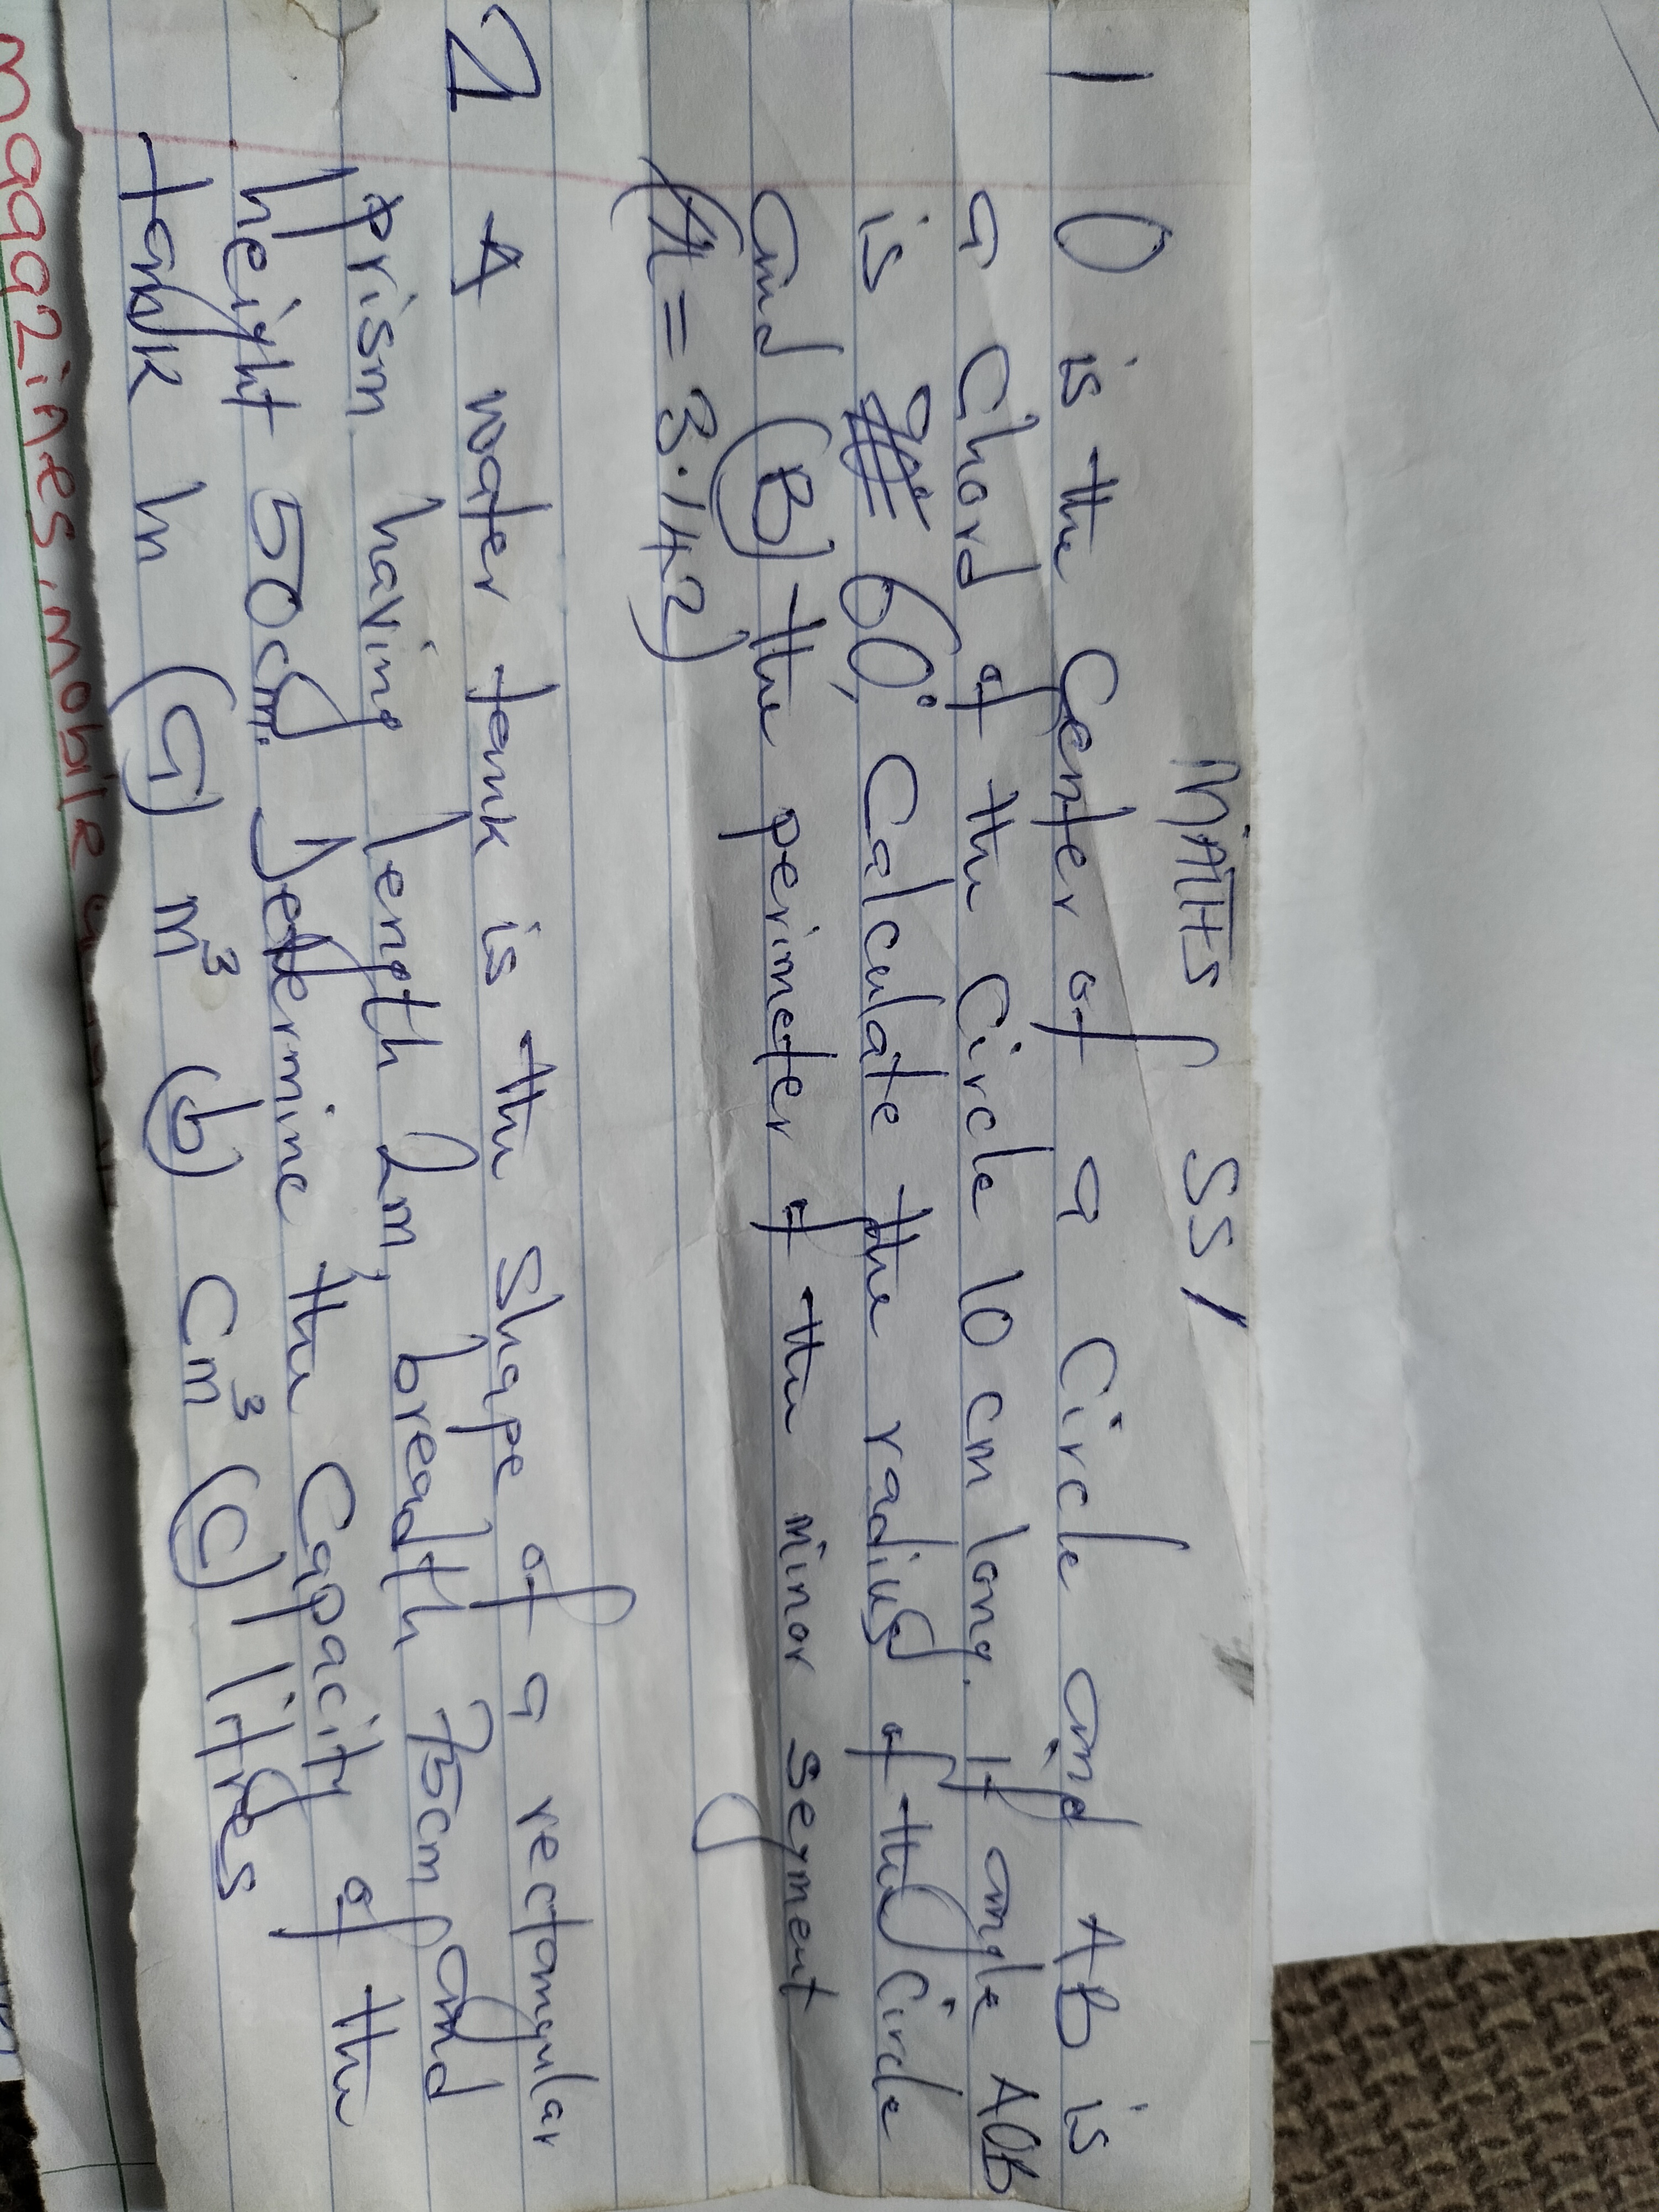 MATHS SS1
1 O is the Center of a Circle and AB is
a Chord of the Circle 10 cm long. If angle AOB
is 60°, Calculate the radius of the Circle
and (B) the perimeter of the minor segment
(π = 3.142)
2 A water tank is the shape of a rectangular
prism having length 2m, breadth 75cm and
height 50cm. Determine the Capacity of the
tank in (a) m³ (b) cm³ (c) litres
magazines.mobile